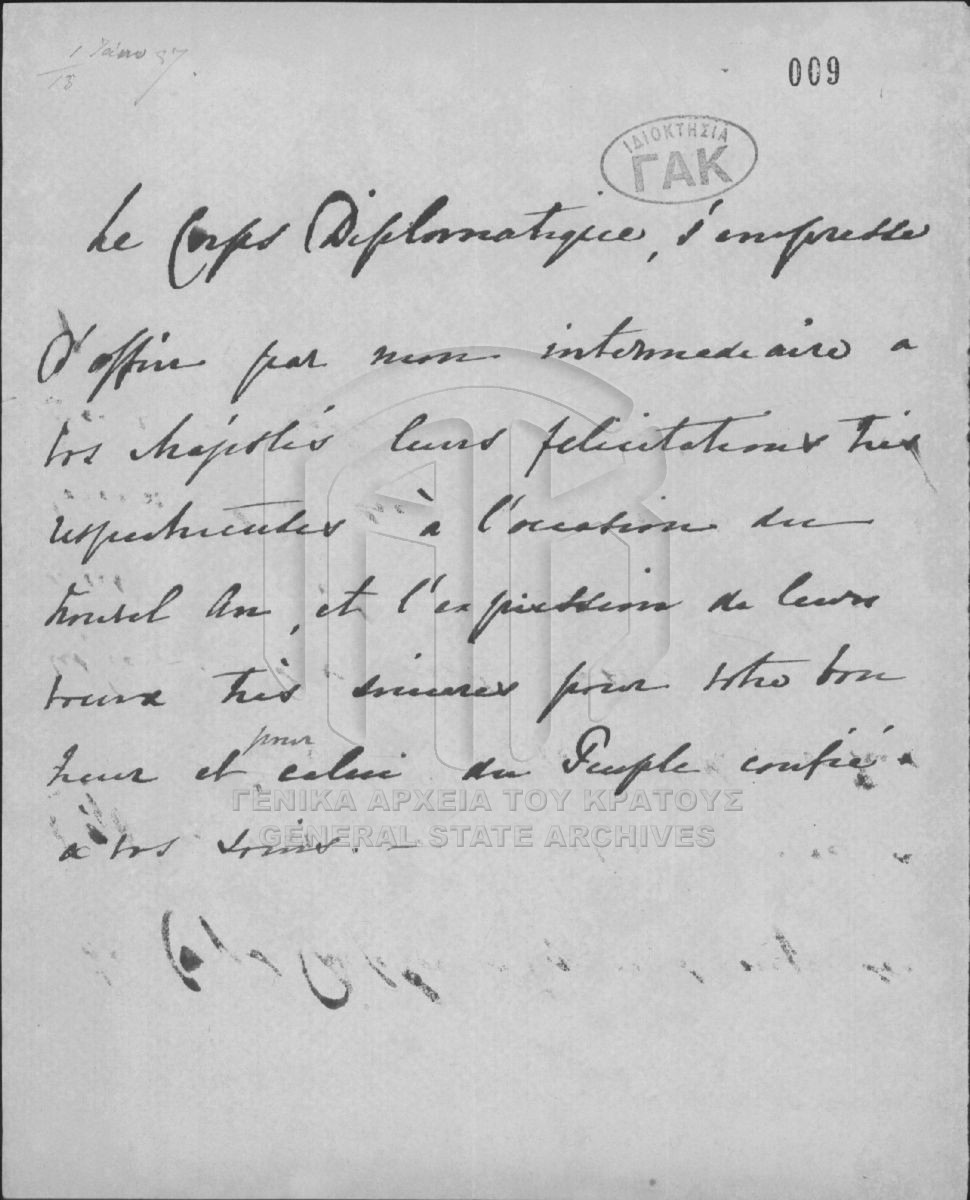 009
ΙΔΙΟΚΤΗΣΙΑ
ΓΑΚ
Le Corps Diplomatique, s'empresse
d'offrir par mon intermediaire a
vos Majestés leurs felicitations très
respectueuses à l'occasion du
Nouvel An, et l'expression de leurs
voeux très sinceres pour votre bon
heur et pour celui du Peuple confié
à vos soins. —
ΓΕΝΙΚΑ ΑΡΧΕΙΑ ΤΟΥ ΚΡΑΤΟΥΣ
GENERAL STATE ARCHIVES